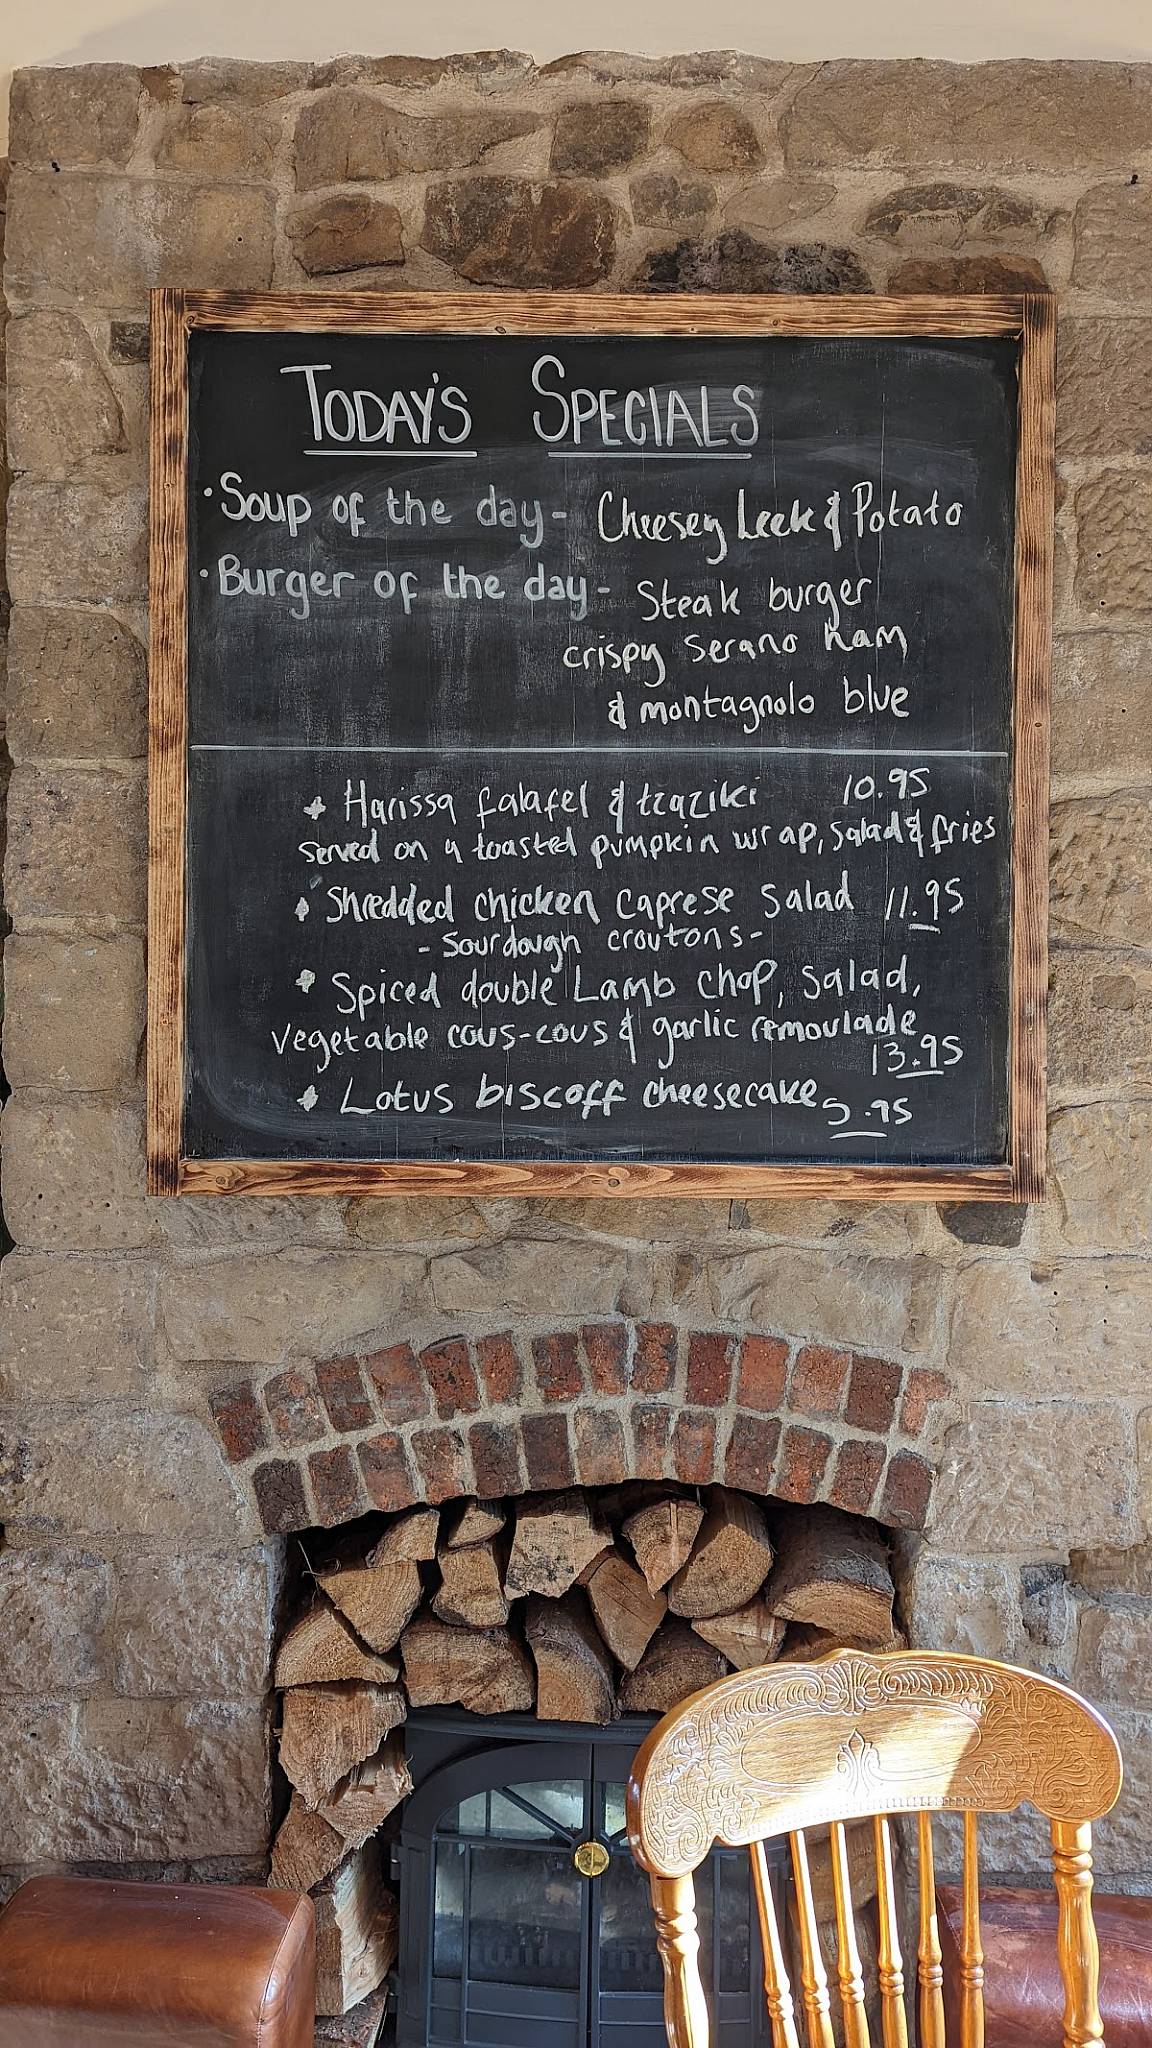 TODAY'S SPECIALS
· Soup of the day - Cheesey Leek & Potato
· Burger of the day - Steak burger
crispy Serano ham
& montagnolo blue
Harissa falafel & tzaziki 10.95
served on a toasted pumpkin wrap, salad & fries
Shredded chicken caprese salad 11.95
- Sourdough croutons -
Spiced double Lamb chop, salad,
vegetable cous-cous & garlic remoulade
13.95
Lotus biscoff cheesecake 5.95